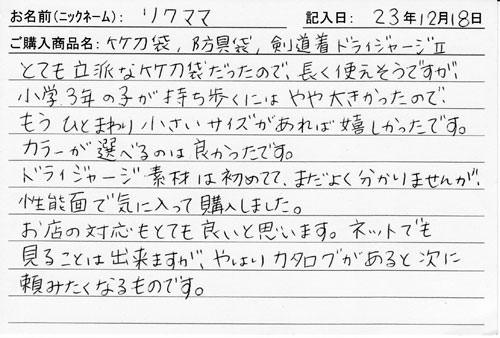 お名前(ニックネーム): リクママ 記入日: 23年12月18日
ご購入商品名: 竹刀袋, 防具袋, 剣道着ドライジャージⅡ
とても立派な竹刀袋だったので、長く使えそうですが、
小学3年の子が持ち歩くにはやや大きかったので、
もうひとまわり小さいサイズがあれば嬉しかったです。
カラーが選べるのは良かったです。
ドライジャージ素材は初めてで、まだよく分かりませんが、
性能面で気に入って購入しました。
お店の対応もとても良いと思います。ネットでも
見ることは出来ますが、やはりカタログがあると次に
頼みたくなるものです。